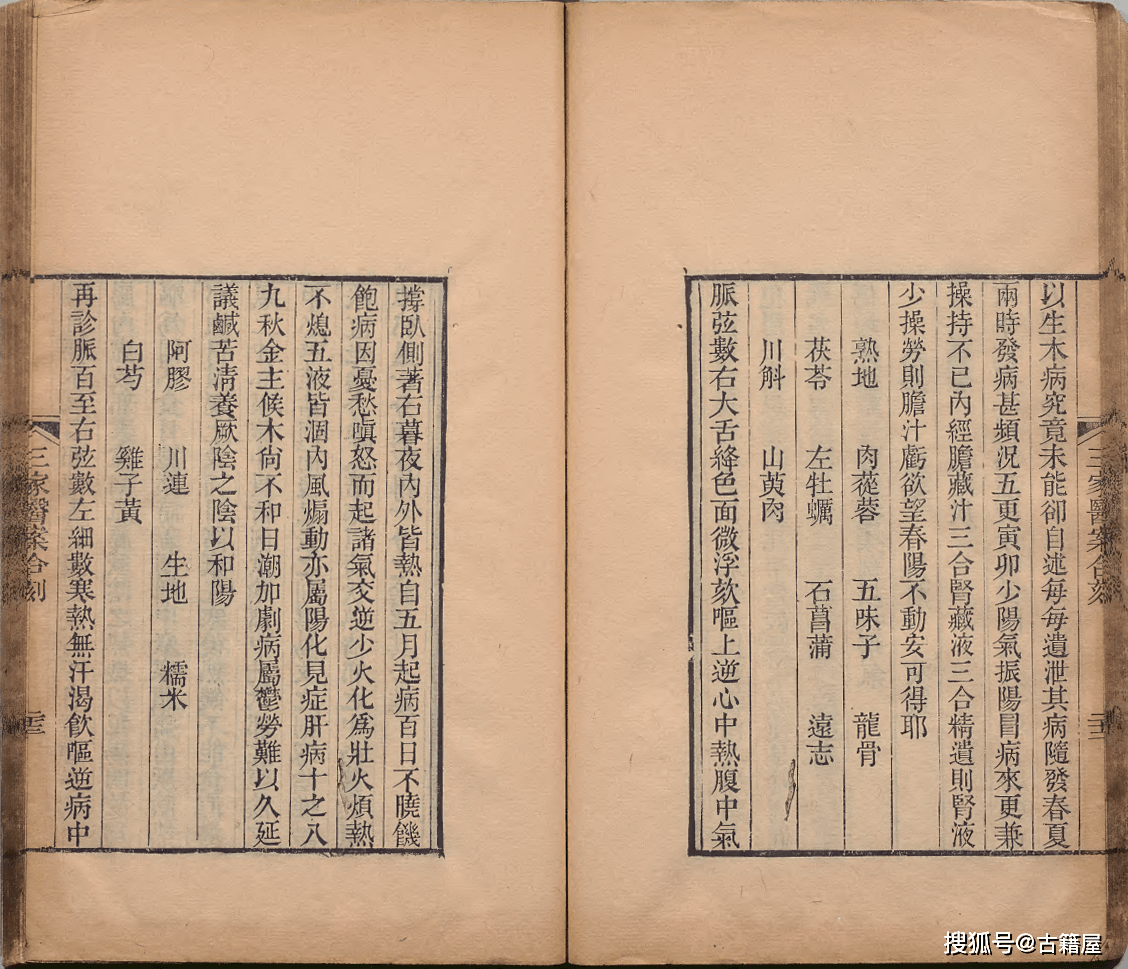 以生木病究竟未能卻自述每每遺泄其病隨發春夏
兩時發病甚頻況五更寅卯少陽氣振陽冒病來更兼
操持不已內經膽藏汁三合腎藏液三合精遺則腎液
少操勞則膽汁虧欲望春陽不動安可得耶
熟地 肉蓯蓉 五味子 龍骨
茯苓 左牡蠣 石菖蒲 遠志
川斛 山萸肉
脈弦數右大舌絳色面微浮欬嘔上逆心中熱腹中氣
撐臥側著右暮夜內外皆熱自五月起病百日不曉饑
飽病因憂愁嗔怒而起諸氣交逆少火化為壯火煩熱
不熄五液皆涸內風煽動亦屬陽化見症肝病十之八
九秋金主候木尚不和日潮加劇病屬鬱勞難以久延
議鹹苦清養厥陰之陰以和陽
阿膠 川連 生地 糯米
白芍 雞子黃
再診脈百至右弦數左細數寒熱無汗渴飲嘔逆病中
三家醫案合刻
三家醫案合刻
搜狐号@古籍屋